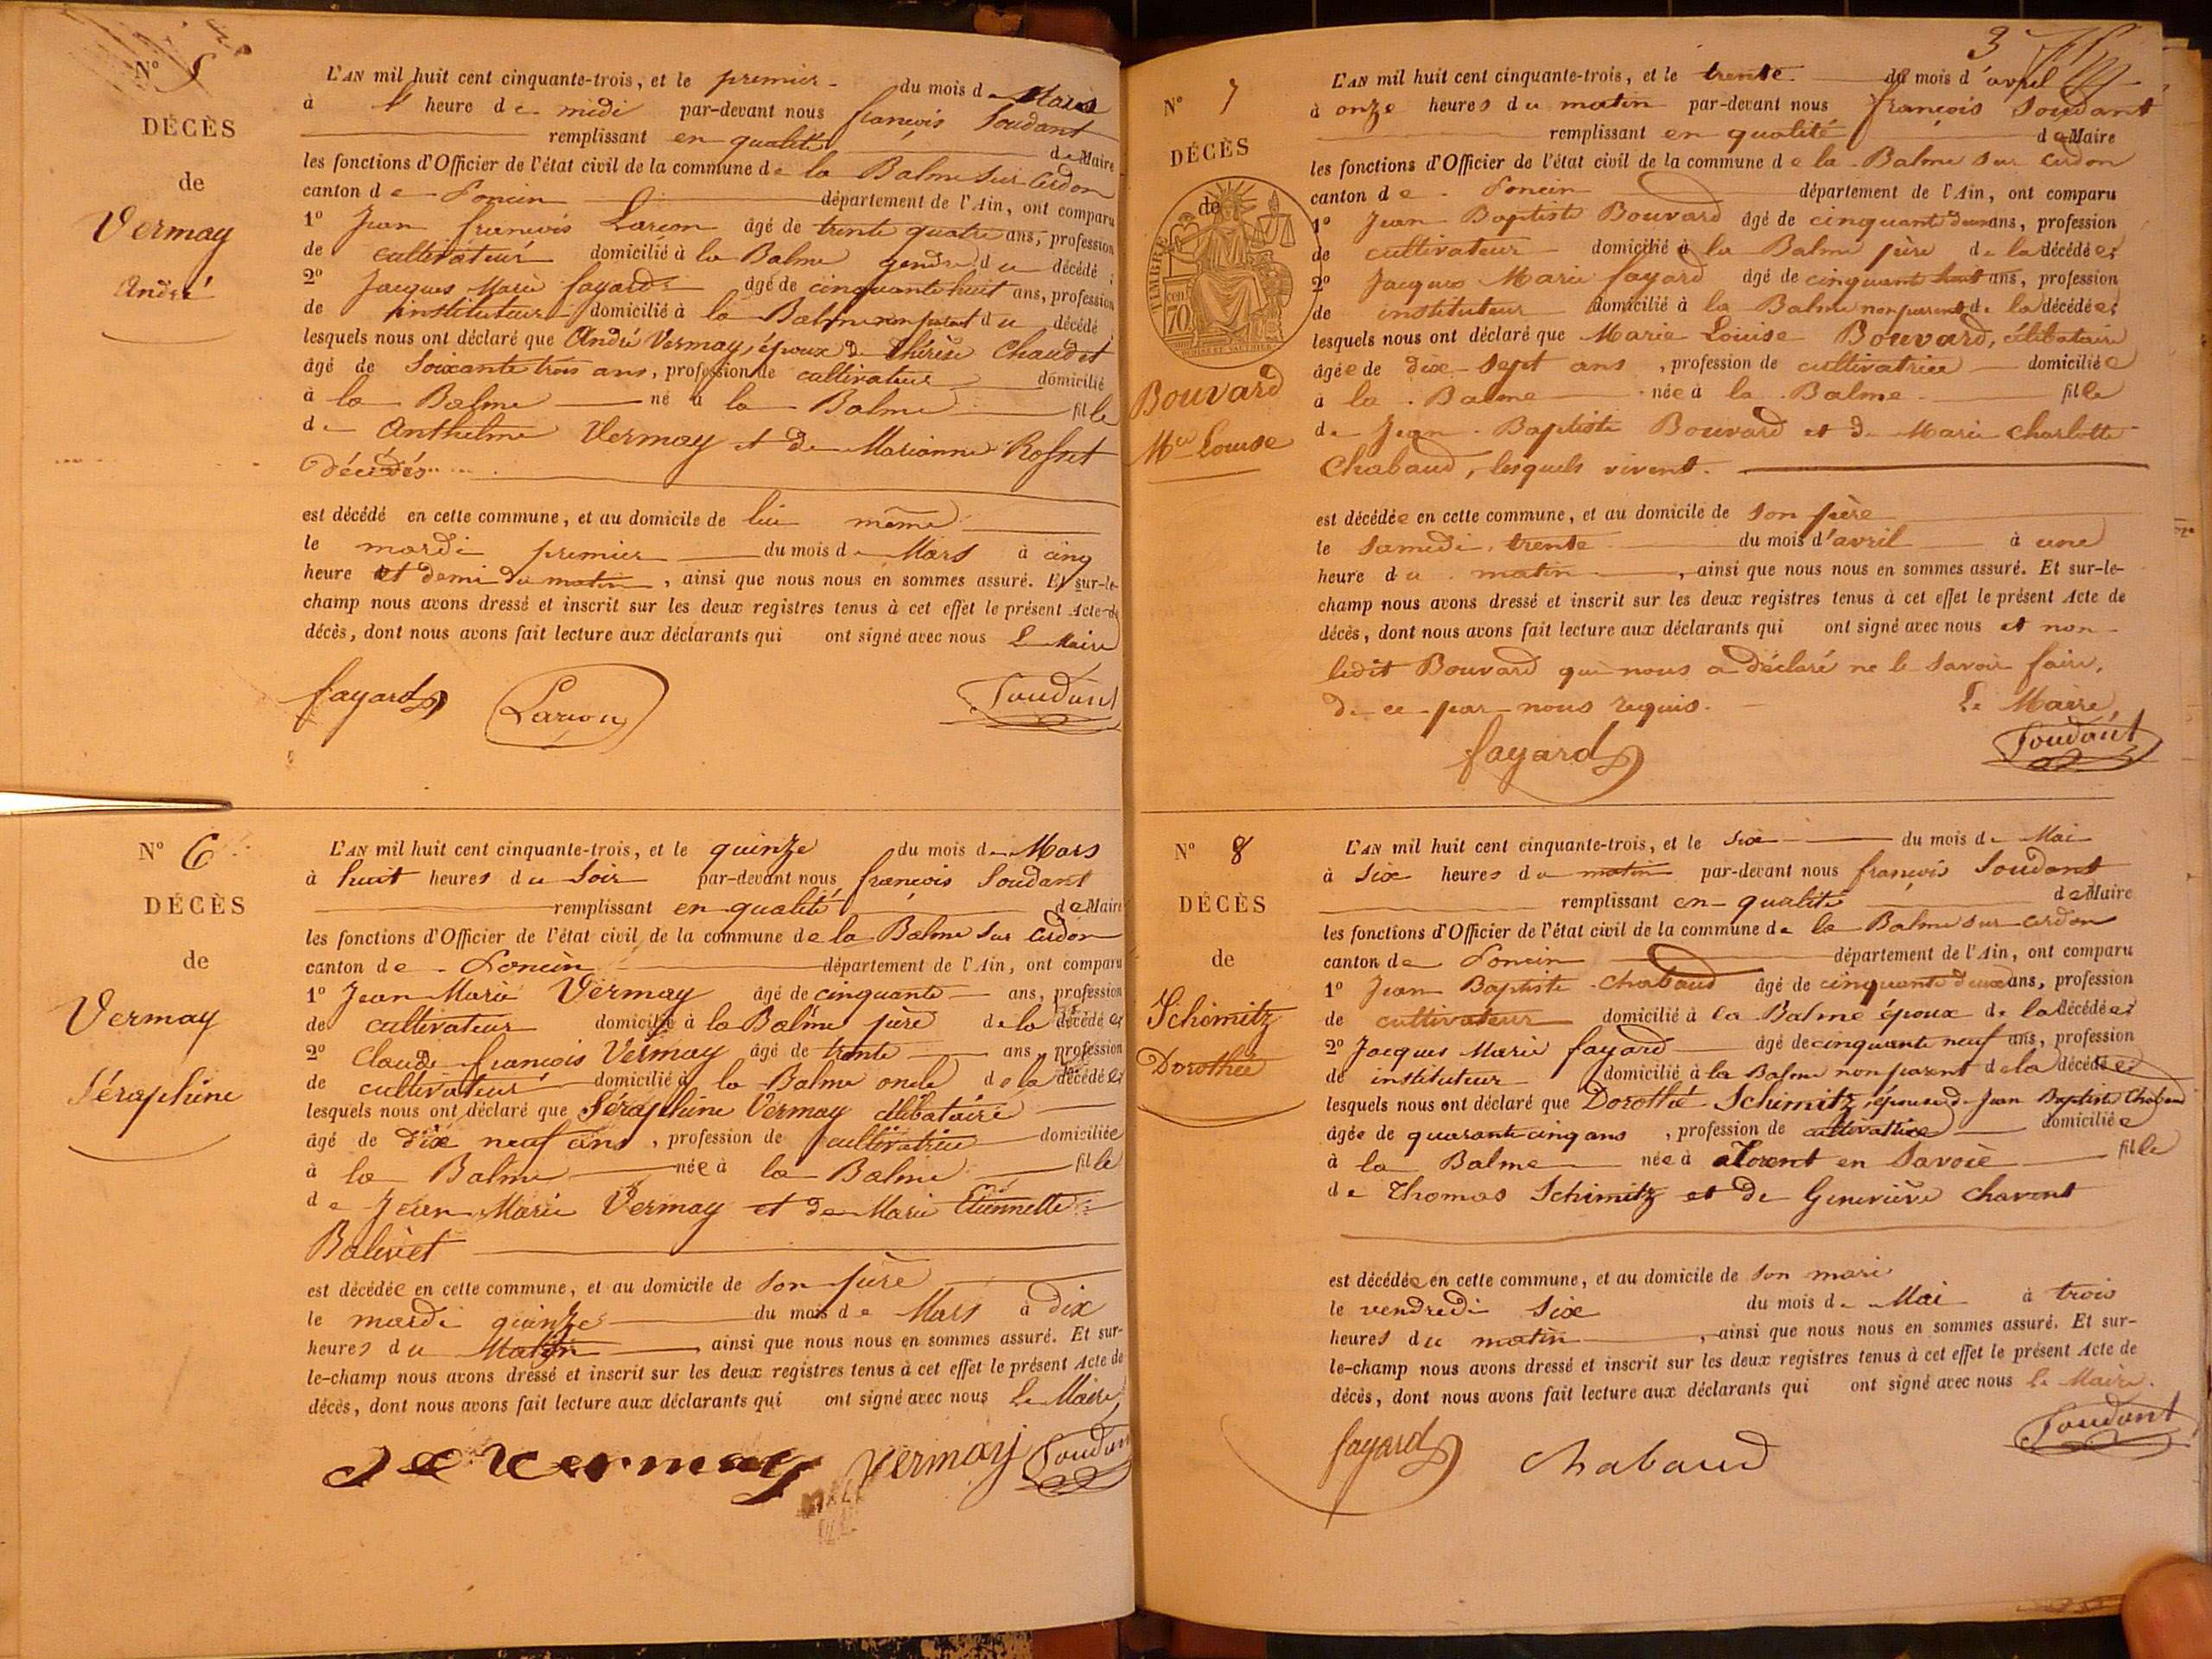 N° 5
DÉCÈS
de
Vermay
André
L'AN mil huit cent cinquante-trois, et le premier du mois de Mars
à l' heure de midi par-devant nous françois Soudant
remplissant en qualité de Maire
les fonctions d'Officier de l'état civil de la commune de la Balme sur Cerdon
canton de Poncin département de l'Ain, ont comparu
1° Jean françois Larion âgé de trente quatre ans, profession
de cultivateur domicilié à la Balme gendre du décédé ;
2° Jacques Marie fayard âgé de cinquante huit ans, profession
de instituteur domicilié à la Balme non parent du décédé ;
lesquels nous ont déclaré que André Vermay, époux de thérèse Chaudet
âgé de Soixante trois ans, profession de cultivateur domicilié
à la Balme né à la Balme fil le
de Anthelme Vermay et de Marianne Rosset
décédés
est décédé en cette commune, et au domicile de lui même
le mardi premier du mois de Mars à cinq
heure et demi du matin, ainsi que nous nous en sommes assuré. Et sur-le-
champ nous avons dressé et inscrit sur les deux registres tenus à cet effet le présent Acte de
décès, dont nous avons fait lecture aux déclarants qui ont signé avec nous Le Maire
fayard Larion Soudant
N° 6
DÉCÈS
de
Vermay
Séraphine
L'AN mil huit cent cinquante-trois, et le quinze du mois de Mars
à huit heures du Soir par-devant nous françois Soudant
remplissant en qualité de Maire
les fonctions d'Officier de l'état civil de la commune de la Balme sur Cerdon
canton de Poncin département de l'Ain, ont comparu
1° Jean Marie Vermay âgé de cinquante ans, profession
de cultivateur domicilié à la Balme père de la décédée ;
2° Claude françois Vermay âgé de trente ans, profession
de cultivateur domicilié à la Balme oncle de la décédée ;
lesquels nous ont déclaré que Séraphine Vermay célibataire
âgé de dix neuf ans, profession de cultivatrice domiciliée
à la Balme née à la Balme fille
de Jean Marie Vermay et de Marie Etiennette
Balivet
est décédée en cette commune, et au domicile de son père
le mardi quinze du mois de Mars à dix
heures du Matin, ainsi que nous nous en sommes assuré. Et sur-
le-champ nous avons dressé et inscrit sur les deux registres tenus à cet effet le présent Acte de
décès, dont nous avons fait lecture aux déclarants qui ont signé avec nous Le Maire
Vermay Vermay Soudant
3
N° 7
DÉCÈS
de
TIMBRE
70
Bouvard
Mie Louise
L'AN mil huit cent cinquante-trois, et le trente du mois d'avril
à onze heures du matin par-devant nous françois Soudant
remplissant en qualité de Maire
les fonctions d'Officier de l'état civil de la commune de la Balme sur Cerdon
canton de Poncin département de l'Ain, ont comparu
1° Jean Baptiste Bouvard âgé de cinquante deux ans, profession
de cultivateur domicilié à la Balme père de la décédée ;
2° Jacques Marie fayard âgé de cinquante huit ans, profession
de instituteur domicilié à la Balme non parent de la décédée ;
lesquels nous ont déclaré que Marie Louise Bouvard, célibataire
âgée de dix-sept ans, profession de cultivatrice domiciliée
à la Balme née à la Balme fille
de Jean-Baptiste Bouvard et de Marie Charlotte
Chabaud, lesquels vivent.
est décédée en cette commune, et au domicile de son père
le samedi trente du mois d'avril à une
heure du matin, ainsi que nous nous en sommes assuré. Et sur-le-
champ nous avons dressé et inscrit sur les deux registres tenus à cet effet le présent Acte de
décès, dont nous avons fait lecture aux déclarants qui ont signé avec nous et non
ledit Bouvard qui nous a déclaré ne le savoir faire,
de ce par nous requis. Le Maire,
fayard Soudant
N° 8
DÉCÈS
de
Schimitz
Dorothée
L'AN mil huit cent cinquante-trois, et le six du mois de Mai
à six heures du matin par-devant nous françois Soudant
remplissant en qualité de Maire
les fonctions d'Officier de l'état civil de la commune de la Balme sur Cerdon
canton de Poncin département de l'Ain, ont comparu
1° Jean Baptiste Chabaud âgé de cinquante deux ans, profession
de cultivateur domicilié à la Balme époux de la décédée ;
2° Jacques Marie fayard âgé de cinquante neuf ans, profession
de instituteur domicilié à la Balme non parent de la décédée ;
lesquels nous ont déclaré que Dorothé Schimitz, épouse de Jean Baptiste Chabaud
âgée de quarante cinq ans, profession de cultivatrice domiciliée
à la Balme née à en Savoie fille
de Thomas Schimitz et de Geneviève Chavent
est décédée en cette commune, et au domicile de son mari
le vendredi six du mois de Mai à trois
heures du matin, ainsi que nous nous en sommes assuré. Et sur-
le-champ nous avons dressé et inscrit sur les deux registres tenus à cet effet le présent Acte de
décès, dont nous avons fait lecture aux déclarants qui ont signé avec nous Le Maire.
fayard Chabaud Soudant